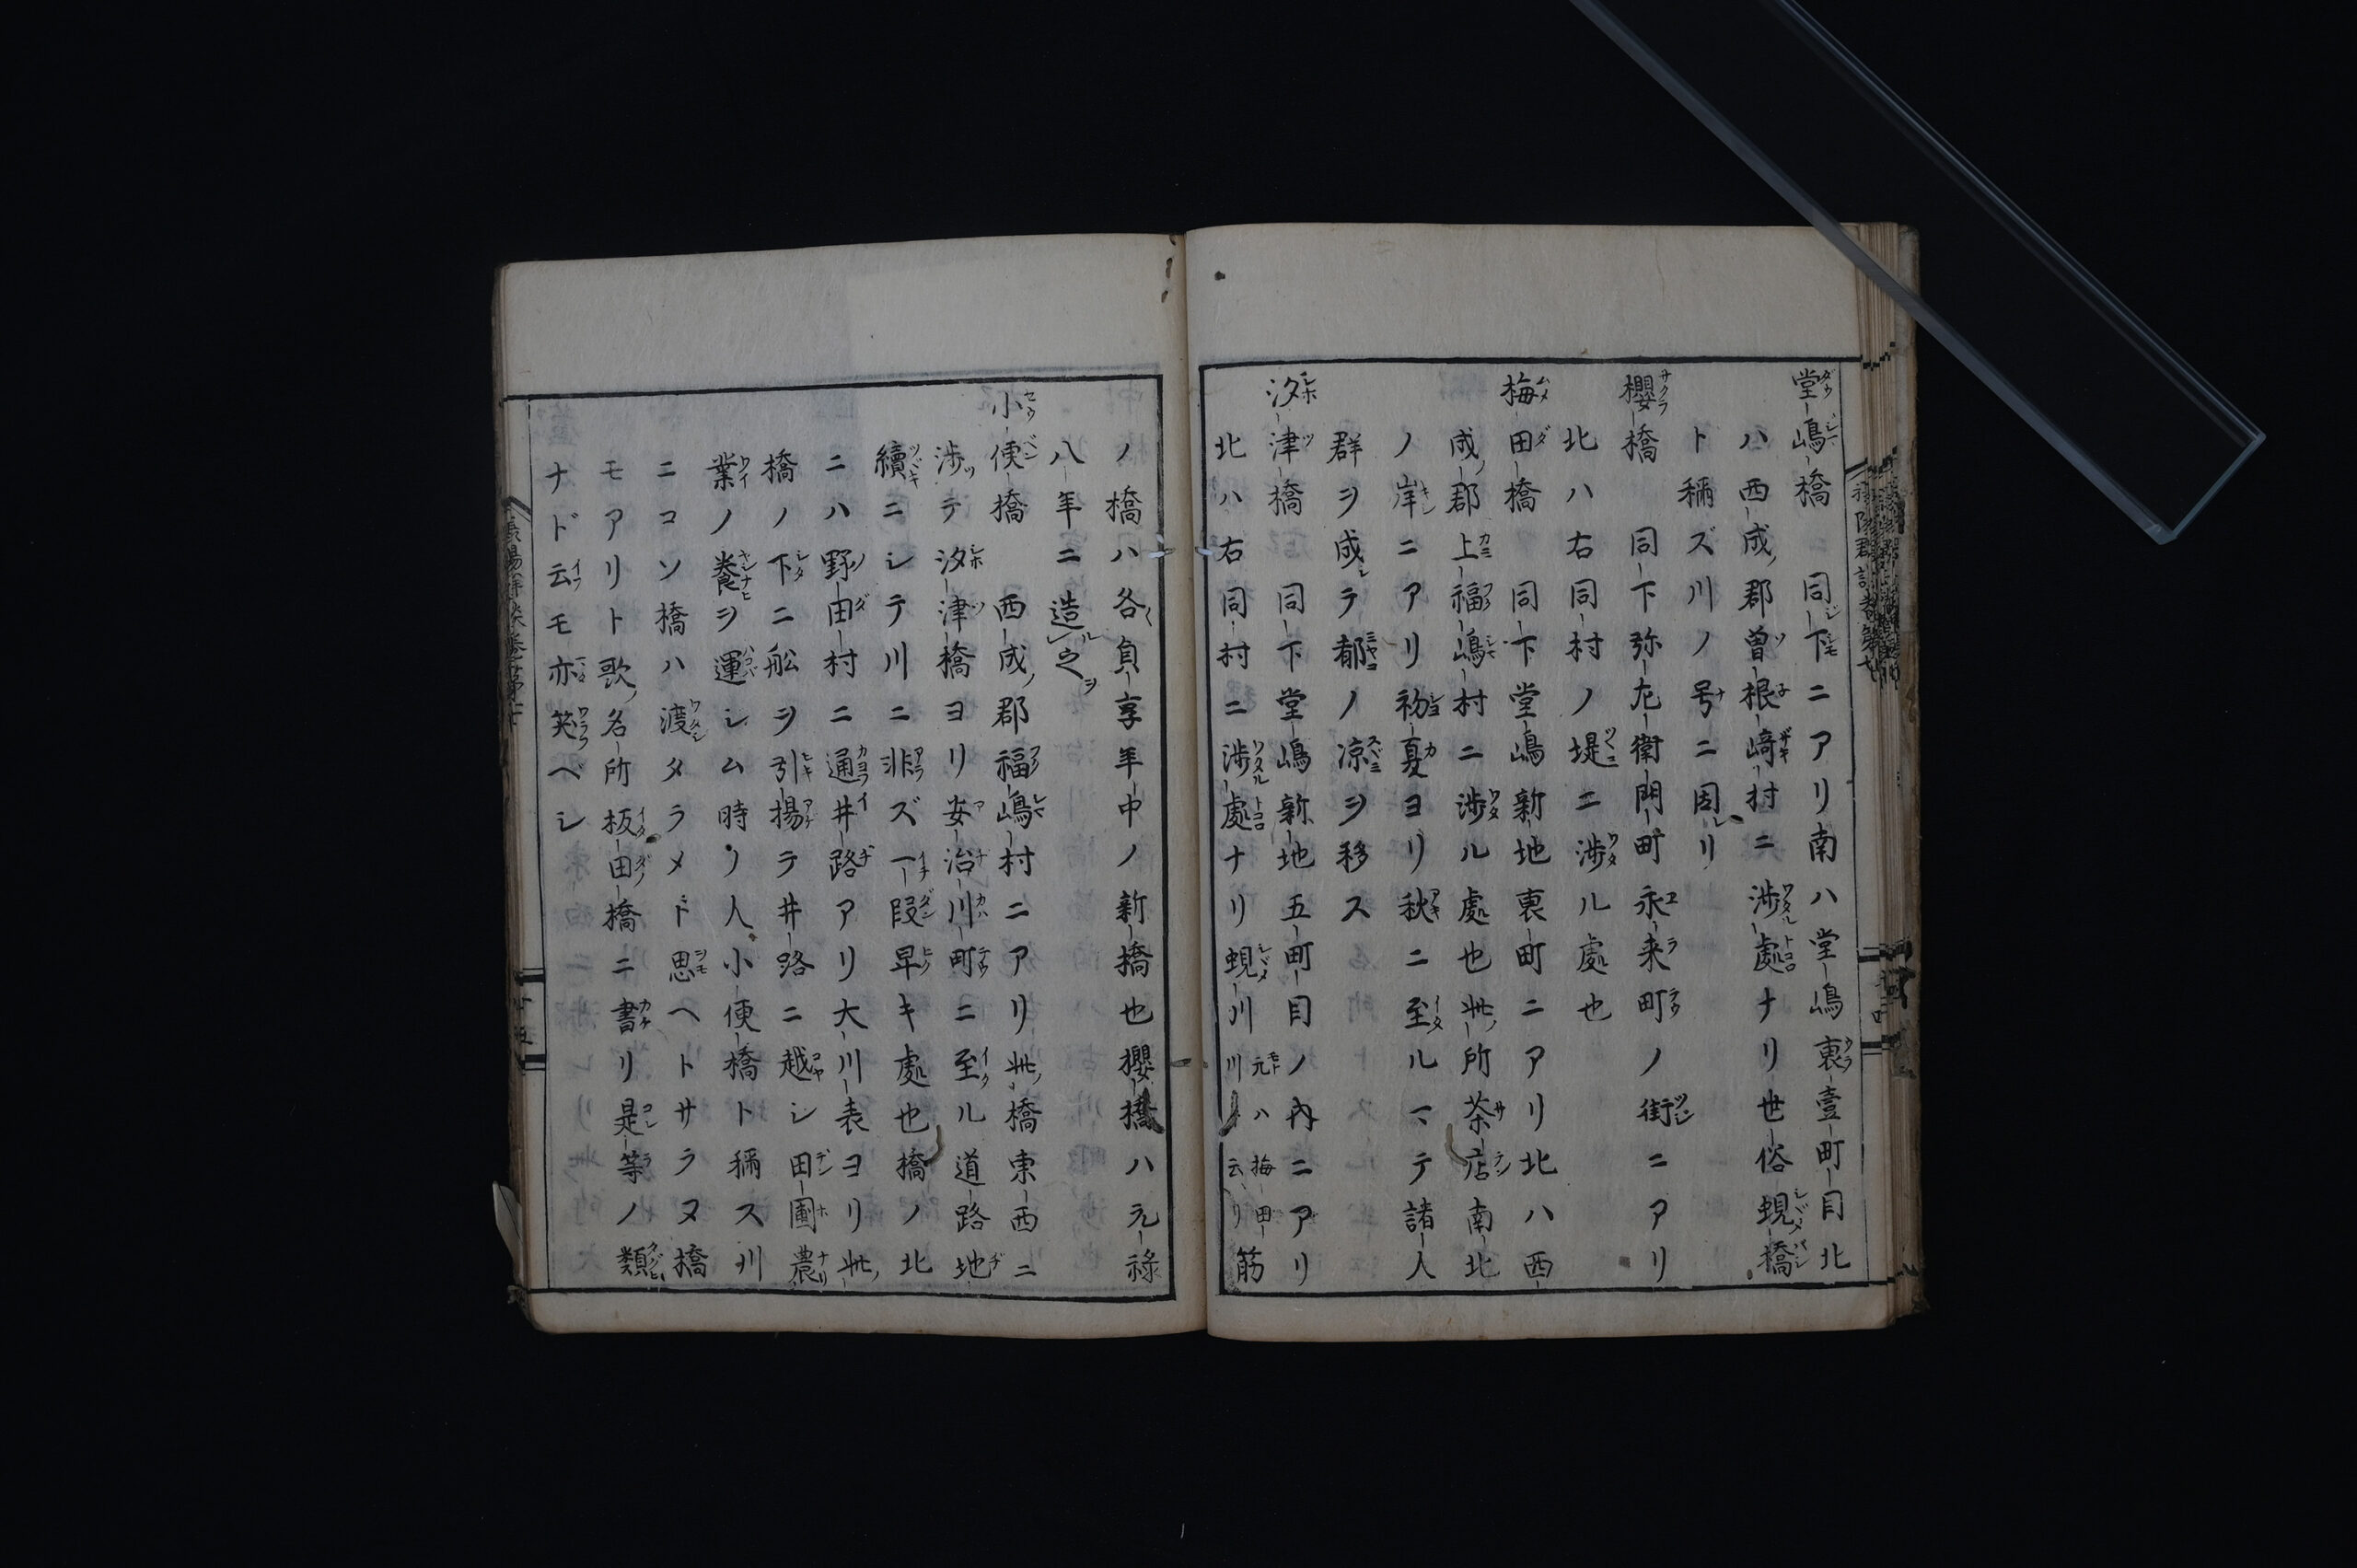 堂嶋橋 同下ニアリ南ハ堂嶋裏壹町目北
ハ西成郡曽根﨑村ニ渉処ナリ世俗蜆橋
ト稱ズ川ノ号ニ因リ
櫻橋 同下弥左衛門町永来町ノ街ニアリ
北ハ右同村ノ堤ニ渉ル處也
梅田橋 同下堂嶋新地裏町ニアリ北ハ西
成郡上福嶋村ニ渉ル處也此所茶店南北
ノ岸ニアリ初夏ヨリ秋ニ至ルマテ諸人
群ヲ成テ都ノ凉ヲ移ス
汐津橋 同下堂嶋新地五町目ノ内ニアリ
北ハ右同村ニ渉處ナリ蜆川 元ハ梅田川云リ 筋
ノ橋ハ各貞享年中ノ新橋也櫻橋ハ元祿
八年ニ造之
小便橋 西成郡福嶋村ニアリ此橋東西ニ
渉テ汐津橋ヨリ安治川町ニ至ル道路地
續ニシテ川ニ非ズ一段早キ處也橋ノ北
ニハ野田村ニ通井路アリ大川表ヨリ此
橋ノ下ニ舩ヲ引揚テ井路ニ越シ田圃農
業ノ養ヲ運シム時ノ人小便橋ト稱ス川
ニコソ橋ハ渡タラメド思ヘトサラヌ橋
モアリト歌名所板田橋ニ書リ是等ノ類
ナド云モ亦笑ベシ